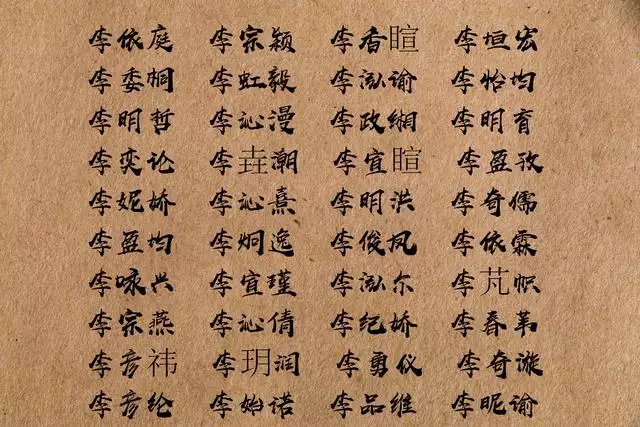 李依庭 李宗颖 李香暄 李垣宏
李委桐 李虹毅 李泓谕 李怡均
李明哲 李沁漫 李政缃 李明育
李奕论 李垚潮 李宜暄 李盈孜
李妮娇 李沁熹 李明洪 李奇儒
李盈均 李炯逸 李俊凤 李依霖
李咏兴 李宜瑾 李泓尔 李芃帜
李宗燕 李沁倩 李纪娇 李春苇
李彦祎 李玥润 李勇仪 李奇漩
李彦纶 李始诺 李品维 李昵谕